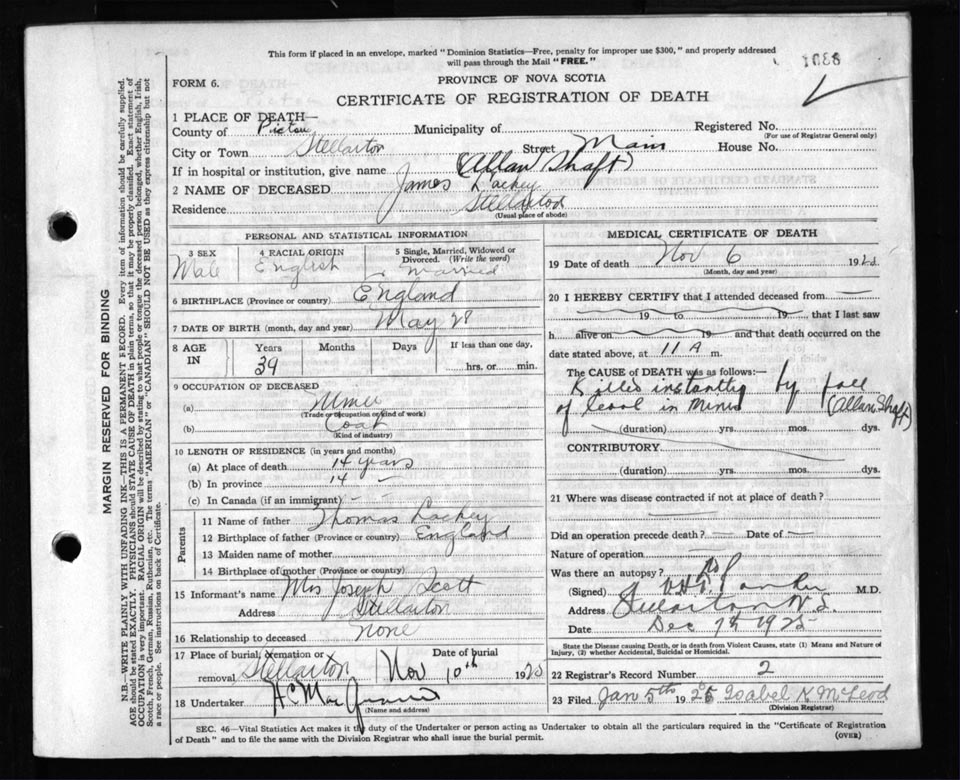 This form if placed in an envelope, marked "Dominion Statistics—Free, penalty for improper use $300," and properly addressed
will pass through the Mail "FREE."
1088
FORM 6.
PROVINCE OF NOVA SCOTIA
CERTIFICATE OF REGISTRATION OF DEATH
1 PLACE OF DEATH—
County of Pictou Municipality of Registered No.
(For use of Registrar General only)
City or Town Stellarton Street Main House No.
If in hospital or institution, give name (Allan Shaft)
2 NAME OF DECEASED James Lackey
Residence Stellarton
(Usual place of abode)
PERSONAL AND STATISTICAL INFORMATION
3 SEX 4 RACIAL ORIGIN 5 Single, Married, Widowed or Divorced. (Write the word)
Male English Married
6 BIRTHPLACE (Province or country) England
7 DATE OF BIRTH (month, day and year) May 28
8 AGE IN Years Months Days If less than one day,
39 hrs. or min.
9 OCCUPATION OF DECEASED
(a) Miner
(Trade or occupation or kind of work)
(b) Coal
(Kind of industry)
10 LENGTH OF RESIDENCE (in years and months)
(a) At place of death 14 years
(b) In province 14 —
(c) In Canada (if an immigrant) — —
Parents
11 Name of father Thomas Lackey
12 Birthplace of father (Province or country) England
13 Maiden name of mother
14 Birthplace of mother (Province or country)
15 Informant's name Mrs Joseph Scott
Address Stellarton
16 Relationship to deceased none
17 Place of burial, cremation or removal Date of burial
Stellarton Nov 10th 1925
18 Undertaker
(Name and address)
MEDICAL CERTIFICATE OF DEATH
19 Date of death Nov 6 1925
(Month, day and year)
20 I HEREBY CERTIFY that I attended deceased from
19 to 19 , that I last saw
h alive on 19 and that death occurred on
date stated above, at 11 A m.
The CAUSE OF DEATH was as follows:—
Killed instantly by fall
of coal in Mines (Allan Shaft)
(duration) yrs. mos. dys.
CONTRIBUTORY
(duration) yrs. mos. dys.
21 Where was disease contracted if not at place of death?
Did an operation precede death? — Date of —
Nature of operation
Was there an autopsy? No
(Signed) M.D.
Address Stellarton N.S.
Date Dec 7th 1925
State the Disease causing Death, or in death from Violent Causes, state (1) Means and Nature of Injury, (2) whether Accidental, Suicidal or Homicidal.
22 Registrar's Record Number 2
23 Filed Jan 5th 1926 Isabel K McLeod
(Division Registrar)
SEC. 46—Vital Statistics Act makes it the duty of the Undertaker or person acting as Undertaker to obtain all the particulars required in the "Certificate of Registration
of Death" and to file the same with the Division Registrar who shall issue the burial permit.
(OVER)
MARGIN RESERVED FOR BINDING
N.B.—WRITE PLAINLY WITH UNFADING INK—THIS IS A PERMANENT RECORD. Every item of information should be carefully supplied.
AGE should be stated EXACTLY. PHYSICIANS should STATE CAUSE OF DEATH in plain terms, so that it may be properly classified. Exact statement of
OCCUPATION is very important. RACIAL ORIGIN will be described by stating to what people or tongue the deceased person belonged, whether English, Irish,
Scotch, French, German, Russian, Ruthenian, etc. The terms "AMERICAN" or "CANADIAN" SHOULD NOT BE USED as they express citizenship but not
a race or people. See instructions on back of Certificate.